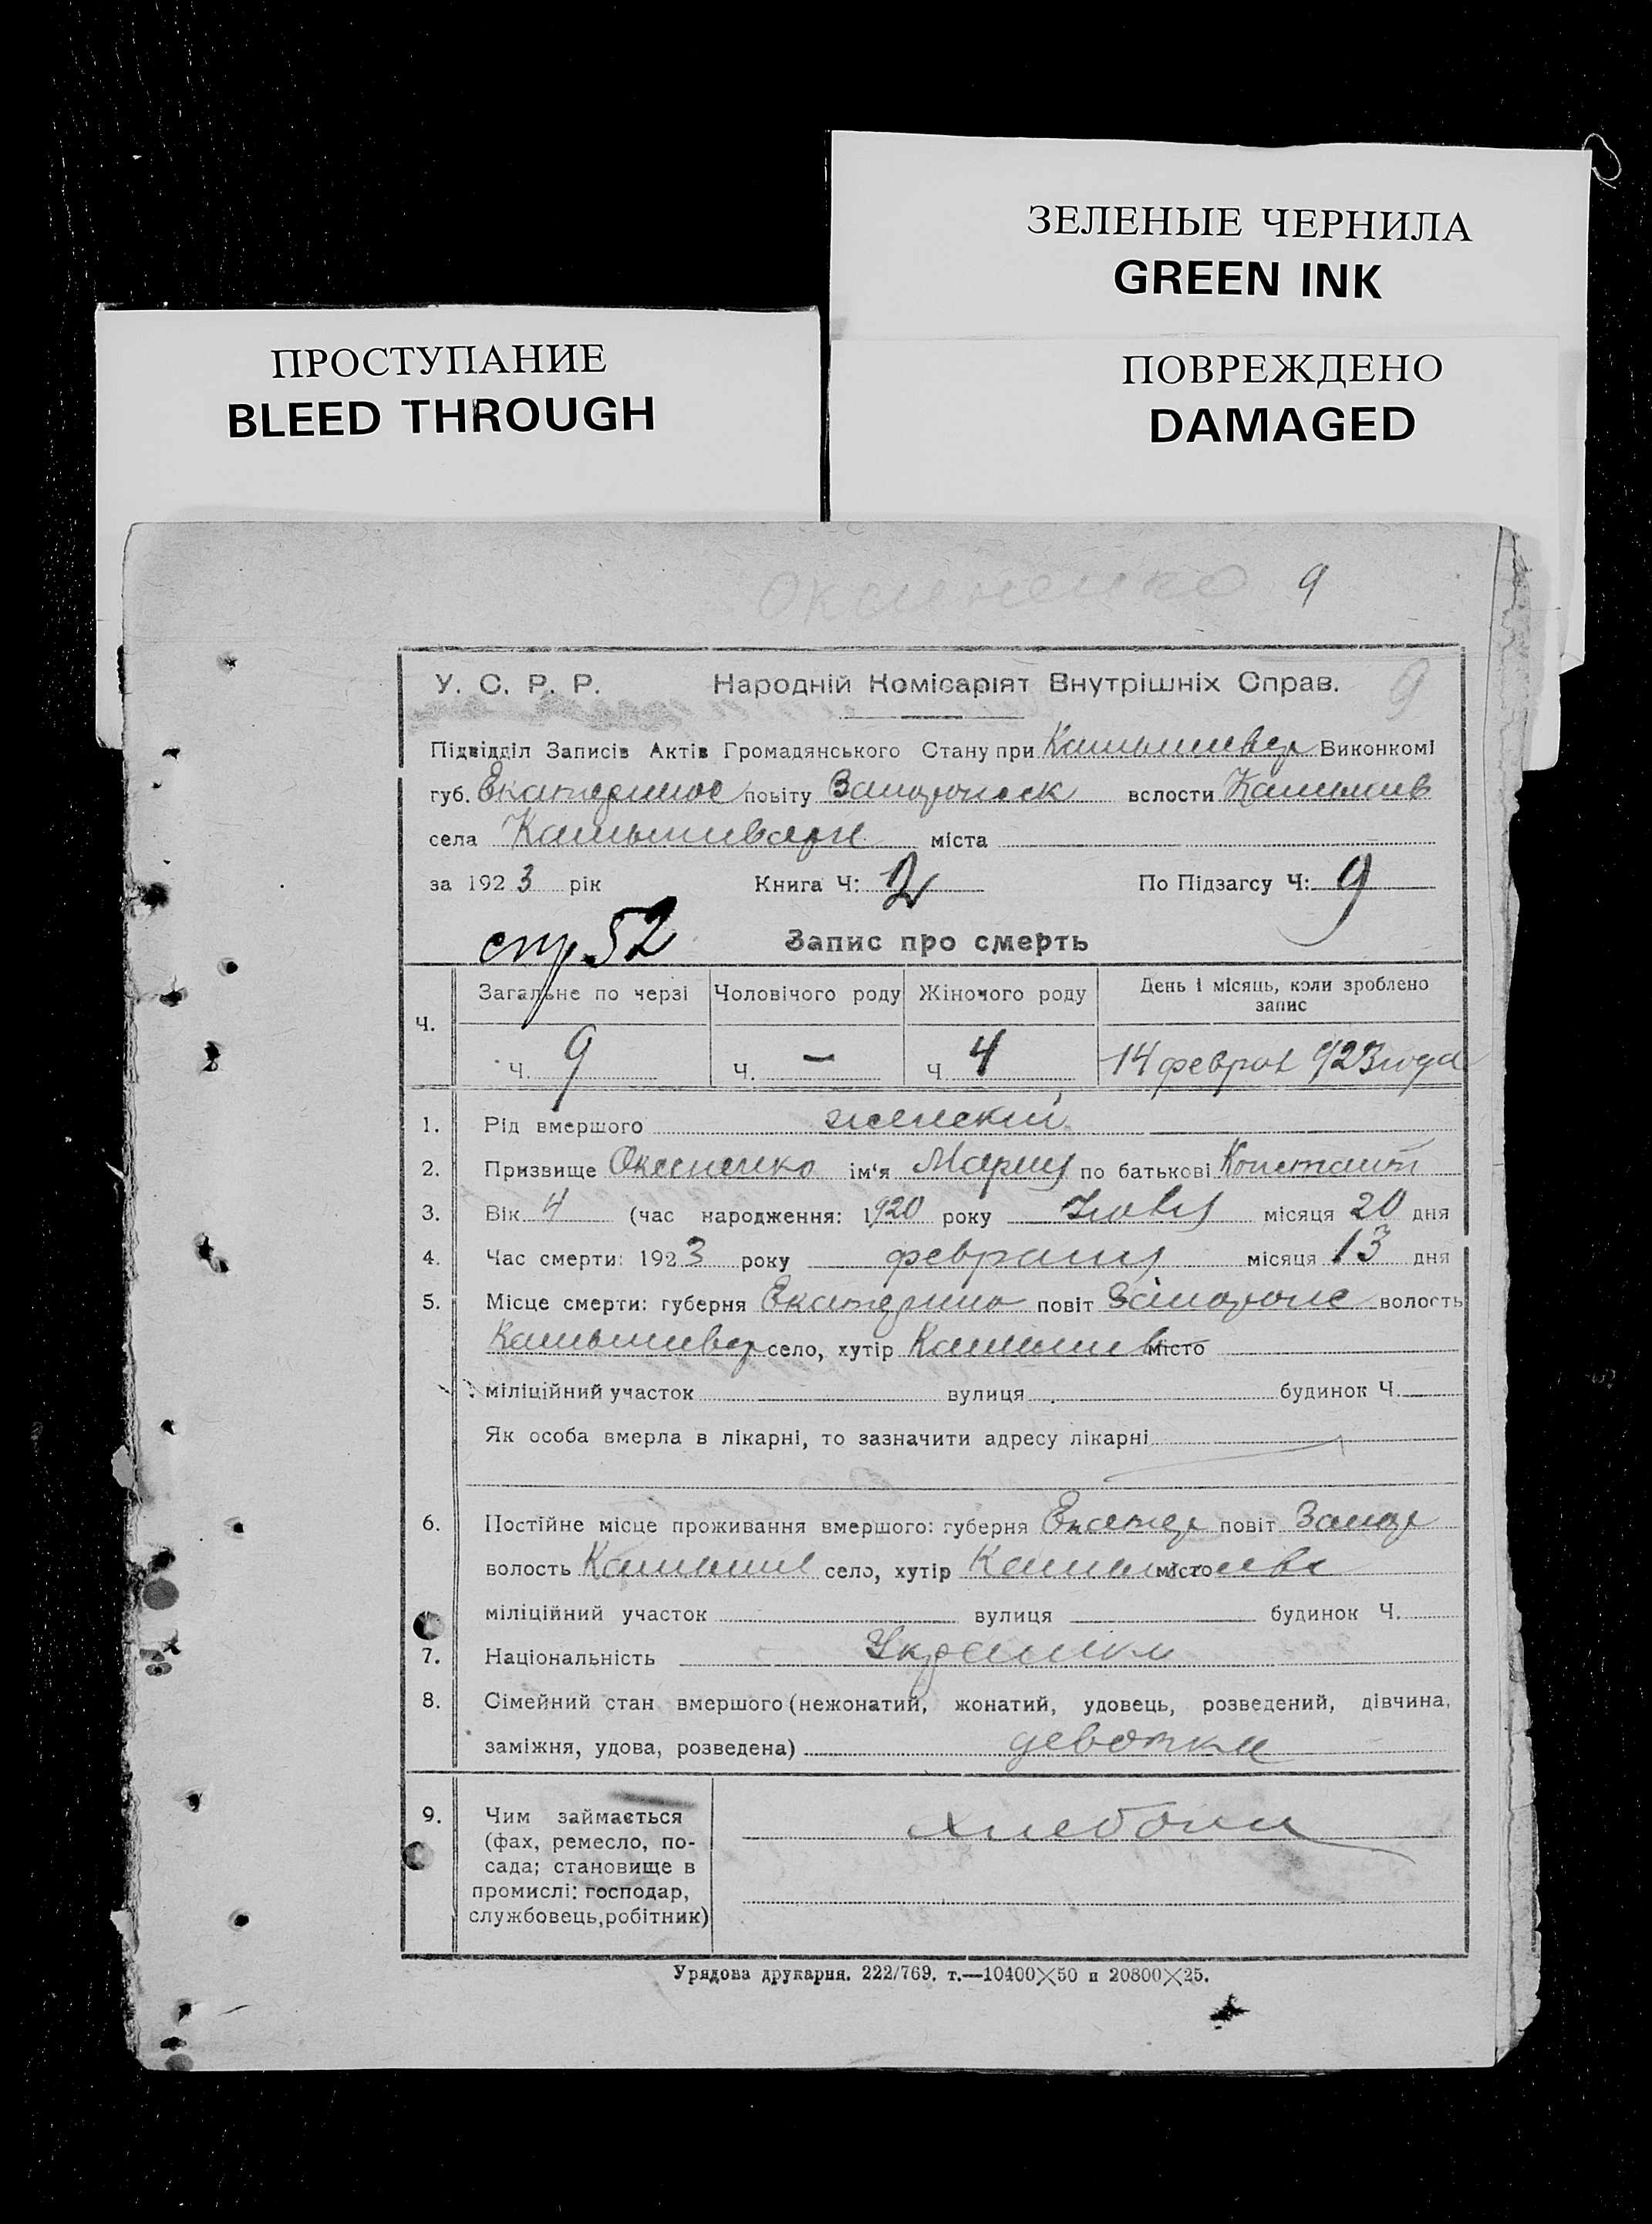 ЗЕЛЕНЫЕ ЧЕРНИЛА
GREEN INK
ПРОСТУПАНИЕ
BLEED THROUGH
ПОВРЕЖДЕНО
DAMAGED
9
У. С. Р. Р. Народній Комісаріят Внутрішніх Справ. 9
Підвідділ Записів Актів Громадянського Стану при Камышевах Виконкомі
губ. Екатеринос повіту Запорожск волости Камышев
села Камышевахи міста
за 1923 рік Книга Ч: 2 По Підзагсу Ч: 9
стр. 52 Запис про смерть
Ч. Загальне по черзі Чоловічого роду Жіночого роду День і місяць, коли зроблено запис
Ч. 9 Ч. — Ч. 4 14 феврал 923 года
1. Рід вмершого женский
2. Призвище имʼя Мария по батькові Констант
3. Вік 4 (час народження: 1920 року місяця 20 дня
4. Час смерти: 1923 року февраля місяця 13 дня
5. Місце смерти: губерня Екатерино повіт Запорож волость
Камышевах село, хутір Камышев місто
міліційний участок вулиця будинок Ч.
Як особа вмерла в лікарні, то зазначити адресу лікарні
6. Постійне місце проживання вмершого: губерня Екатер повіт Запор
волость Камыше село, хутір місто
міліційний участок вулиця будинок Ч.
7. Національність
8. Сімейний стан вмершого (нежонатий, жонатий, удовець, розведений, дівчина,
заміжня, удова, розведена) девочка
9. Чим займається
(фах, ремесло, по-
сада; становище в
промислі: господар,
службовець, робітник)
Урядова друкарня. 222/769. т.—10400×50 и 20800×25.